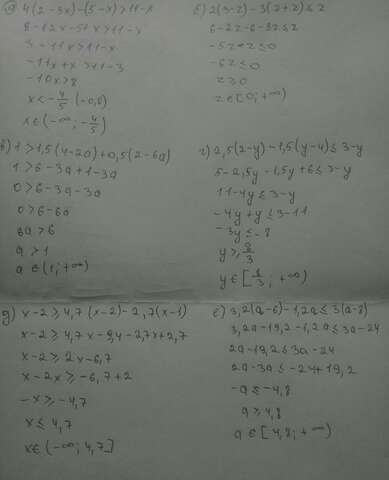 а) 4(2-3x)-(5-x)>11-x
8-12x-5+x>11-x
3-11x>11-x
-11x+x>11-3
-10x>8
x<-4/5 (-0,8)
x∈(-∞;-4/5)
б) 2(3-z)-3(2+z)≤z
6-2z-6-3z≤z
-5z-z≤0
-6z≤0
z≥0
z∈[0;+∞)
в) 1>1,5(4-2a)+0,5(2-6a)
1>6-3a+1-3a
0>6-3a-3a
0>6-6a
6a>6
a>1
a∈(1;+∞)
г) 2,5(2-y)-1,5(y-4)≤3-y
5-2,5y-1,5y+6≤3-y
11-4y≤3-y
-4y+y≤3-11
-3y≤-8
y≥8/3
y∈[8/3;+∞)
д) x-2≥4,7(x-2)-2,7(x-1)
x-2≥4,7x-9,4-2,7x+2,7
x-2≥2x-6,7
x-2x≥-6,7+2
-x≥-4,7
x≤4,7
x∈(-∞;4,7]
е) 3,2(a-6)-1,2a≤3(a-8)
3,2a-19,2-1,2a≤3a-24
2a-19,2≤3a-24
2a-3a≤-24+19,2
-a≤-4,8
a≥4,8
a∈[4,8;+∞)